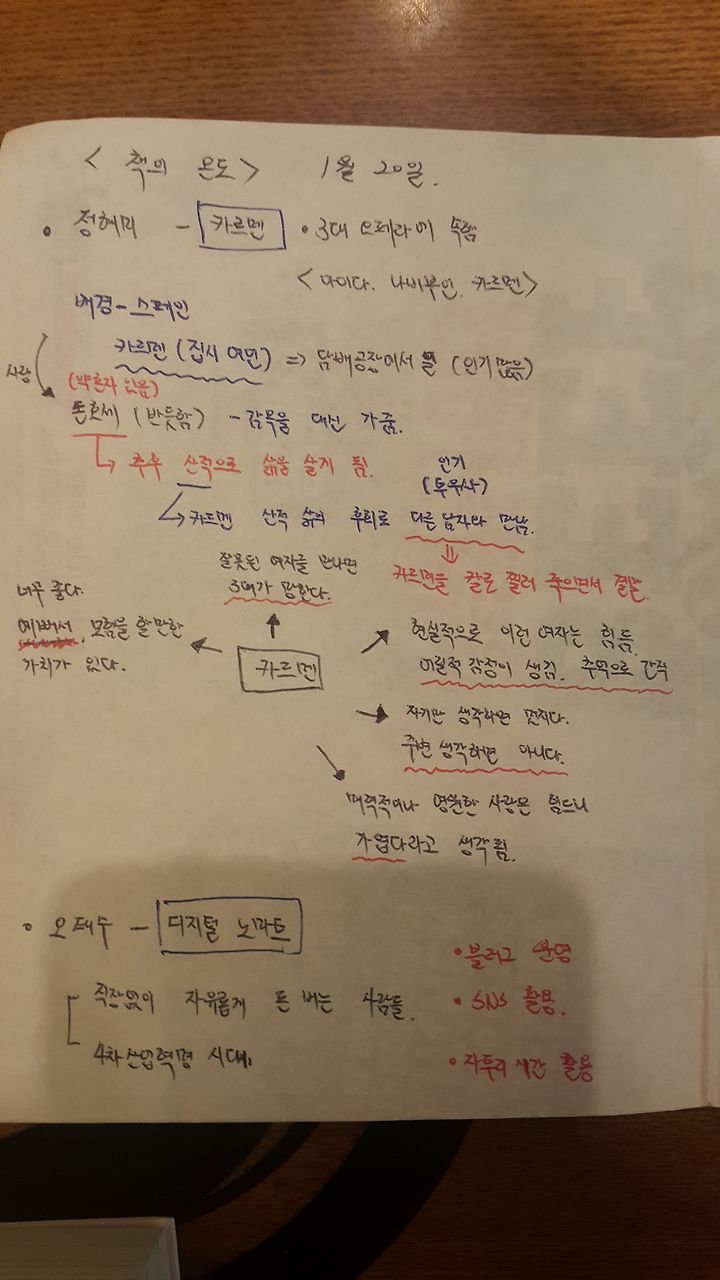 < 책의 온도 > 1월 20일.
• 정혜미 - 카르멘 • 3대 오페라에 속함
< 아이다. 나비부인. 카르멘 >
배경 - 스페인
카르멘 (집시 여인) => 담배공장에서 일 (인기 많음)
사랑
(약혼자 있음)
돈호세 (반듯함) - 감옥을 대신 가줌.
↳ 추후 산적으로 삶을 살게 됨.
인기
(투우사)
↳ 카르멘 산적 삶의 후회로 다른 남자와 만남.
⇓
카르멘을 칼로 찔러 죽으면서 결말.
잘못된 여자를 만나면
3대가 망한다.
너무 좋다.
예뻐서, 모험을 할 만한
가치가 있다.
카르멘
현실적으로 이런 여자는 힘듬.
이럴적 감정이 생김. 추억으로 간직
자기만 생각하면 멋지다.
주변 생각하면 아니다.
매력적이나 영원한 사랑은 힘드니
가엽다라고 생각됨.
• 오태두 - 디지털 노마트
직장없이 자유롭게 돈 버는 사람들.
4차산업혁명 시대.
• 블러그 운영
• SNS 활용.
• 자투리 시간 활용